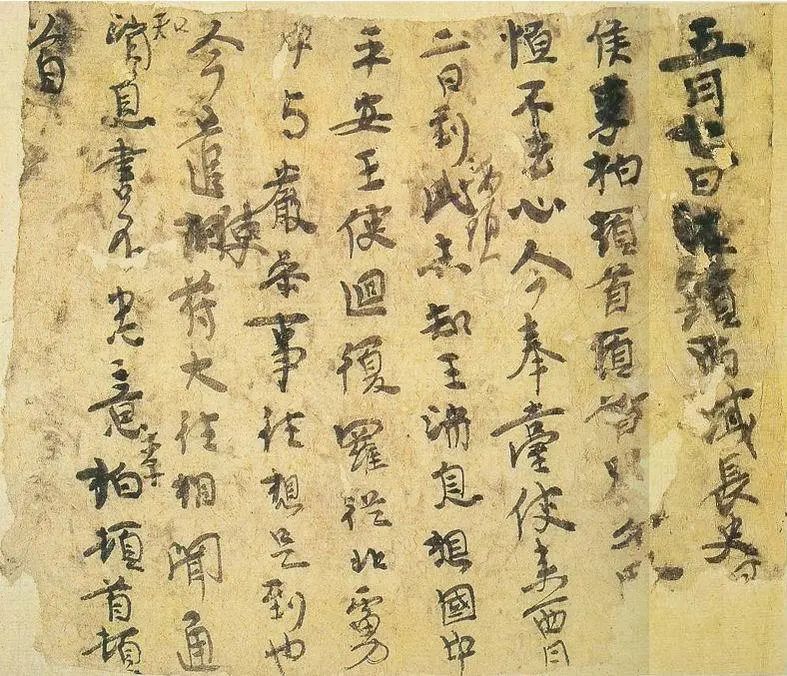 五月七日海頭西域長史関內
侯李柏頓首頓首
恒不去心今奉臺使來西月
二日到此海頭未知王消息想國中
平安王使迴復羅從北虜
中与嚴參事往想是到也
今遣使苻大往相聞通
知消息書不悉意李柏頓首頓
首